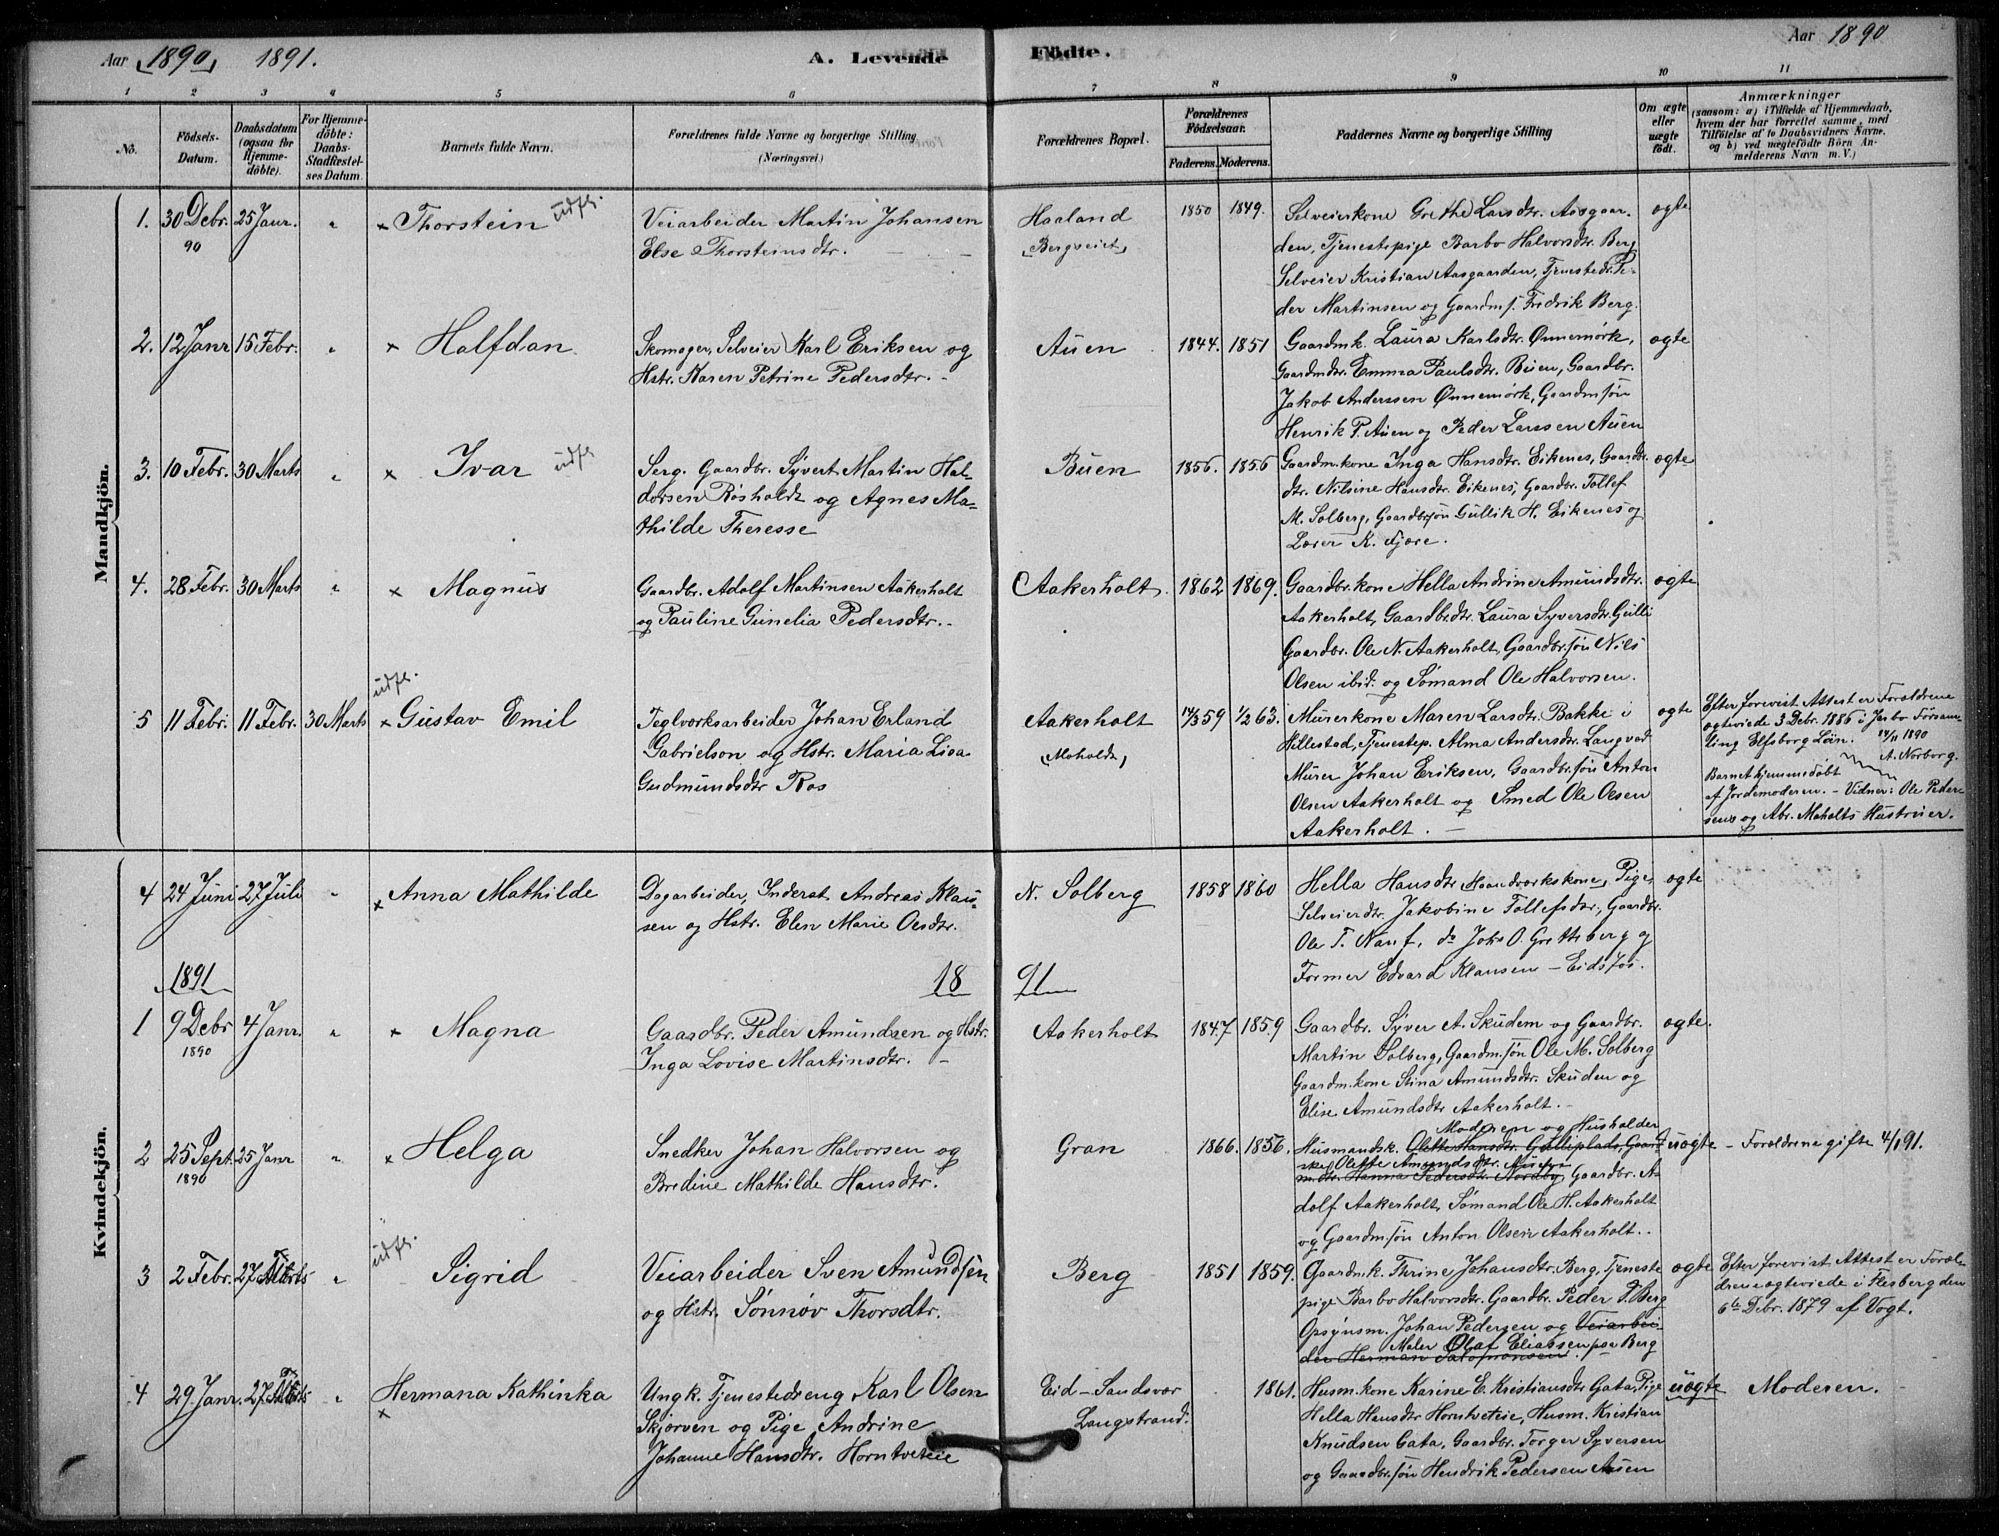 Aar 1890 1891. A. Levende Födte. Aar 1890
1 2 3 4 5 6 7 8 9 10 11
No. Födsels-Datum. Daabsdatum (ogsaa for Hjemme-döbte). For Hjemme-döbte: Daabs-Stadfæstel-ses Datum. Barnets fulde Navn. Forældrenes fulde Navne og borgerlige Stilling (Næringsvei.) Forældrenes Bopæl. Forældrenes Födselsaar. Faderens. Moderens. Faddernes Navne og borgerlige Stilling Om ægte eller uægte födt. Anmærkninger (saasom: a) i Tilfælde af Hjemmedaab, hvem der har forrettet samme, med Tilföielse af to Daabsvidners Navne, og b) ved uægtefödte Börn An-melderens Navn m. V.)
Mandkjön.
1. 30 Debr. 90 25 Janr. " × Thorstein udfl.
Veiarbeider Martin Johansen
Else Thorsteinsdtr.
Haaland
(Bergveiet)
1850 1849.
Selveierkone Grethe Larsdtr. Aasgaar-
den, Tjenestepige Barbo Halvorsdtr. Berg
Selveier Kristian Aasgaarden, Tjenestedr. Pe-
der Martinsen og Gaardms. Fredrik Berg.
ægte
2. 12 Janr 15 Febr. " × Halfdan
Skomager, Selveier Karl Eriksen og
Hstr. Karen Petrine Pedersdtr. -
Auen
1844. 1851
Gaardmk. Laura Karlsdtr. Ønnemørk,
Gaardmdtr. Emma Paulsdtr. Buen, Gaardbr.
Jakob Anderssen Ønnemørk, Gaardmsøn
Henrik P. Auen og Peder Larssen Auen
ægte
3. 10 Febr. 30 Marts " × Ivar udfl
Serg. Gaardbr. Syvert Martin Hal-
dorsen Røsholdt og Agnes Ma-
thilde Theresse
Buen
1856. 1856
Gaardm.kone Inga Hansdtr. Eikenes, Gaardbr.
dtr. Nilsine Hansdtr. Eikenes, Gaardbr. Tollef
M. Solberg, Gaardbrsøn Gullik H. Eikenes og
Lærer K. Fjære.
ægte
4. 28 Febr. 30 Marts " × Magnus
Gaardbr. Adolf Martinsen Aakerholt
og Pauline Gunelia Pedersdtr. -
Aakerholt
1862 1869.
Gaardbr.kone Hella Andrine Amundsdtr.
Aakerholt, Gaardbr.dtr. Laura Syversdtr. Gulli
Gaardbr. Ole N. Aakerholt, Gaardbr.søn Nils
Olsen ibid. og Sømand Ole Halvorsen.
ægte
5 11 Febr. 11 Febr. 30 Marts udfl. × Gustav Emil
Teglværksarbeider Johan Erland
Gabrielson og Hstr. Maria Lisa
Gudmundsdtr Ros
Aakerholt
(Moholdt)
14/3 59 1/2 63.
Murerkone Maren Larsdtr. Bakke i
Hillestad, Tjenestep. Alma Andersdtr. Langved
Murer Johan Eriksen, Gaardbr.søn Anton
Olsen Aakerholt og Smed Ole Olsen
Aakerholt. -
ægte
Efter forevist Attest er Forældrene
ægteviede 3 Debr. 1886 i Jærbo Försam-
ling Elfsborg Län. 14/11 1890
A. Norborg.
Barnet hjemmedøbt
af Jordemoderen. - Vidner: Ole Peder-
sens og Abr. Moholts Hustruer.
Kvindekjön.
4 24 Juni 27 Juli " × Anna Mathilde
Dagarbeider, Inderst Andreas Klau-
sen og Hstr. Elen Marie Olsdtr.
N. Solberg
1858 1860
Hella Hansdtr Haandværkskone, Pige,
Selveierdtr. Jakobine Tollefsdtr., Gaardbr.
Ole T. Nauf, do Joh. O. Gretteberg og
Former Edvard Klausen - Eidsfos.
ægte
1891 18 91
1 9 Debr 1890 4 Janr. " × Magna
Gaardbr. Peder Amundsen og Hstr.
Inga Lovise Martinsdtr. -
Aakerholt
1847 1859
Gaardbr. Syver A. Skuden og Gaardbr.
Martin Solberg, Gaardm.søn Ole M. Solberg
Gaardm.kone Stina Amundsdtr. Skuden og
Elise Amundsdtr Aakerholt. -
ægte.
2 25 Sept. 1890 25 Janr " × Helga
Snedker Johan Halvorsen og
Bredine Mathilde Hansdtr.
Gran
1866. 1856.
Moderen og Husholder
Husmandsk. Olette Hansdtr. Gulliplads, Gaard-
ske Olette Amundsdtr.
m.dtr. Hanna Pedersdtr. Nordby, Gaardbr. A-
dolf Aakerholt, Sømand Ole H. Aakerholt
og Gaardm.søn Anton Olsen Aakerholt.
uægte - Forældrene gifte 4/1 91.
3 2 Febr. 27 Marts " udfl. Sigrid
Veiarbeider Sven Amundsen
og Hstr. Sønnøv Thorsdtr.
Berg
1851 1859.
Gaardmk. Thrine Johansdtr. Berg, Tjeneste
pige Barbo Halvorsdtr. Gaardbr. Peder J. Berg
Opsynsm. Johan Pedersen og Veiarbei-
Maler Olaf Eliassen paa Berg
der Herman Salomonsen.
ægte
Efter forevist Attest er Foræl-
drene ægteviede i Flesberg den
6te Debr. 1879 af Vogt.
4 29 Janr. 27 Marts " × Hermana Kathinka
Ungk. Tjenestedreng Karl Olsen
Skjørven og Pige Andrine
Johanne Hansdtr. Horntveteie
Eid - Sandsvær
Langstrand.
1861.
Husm.kone Karine E. Kristiansdtr Gata, Pige
Hella Hansdtr Horntveteie, Husm. Kristian
Knudsen Gata, Gaardbr. Torger Syversen
og Gaardbr.søn Hendrik Pedersen Auen
uægte Moderen.